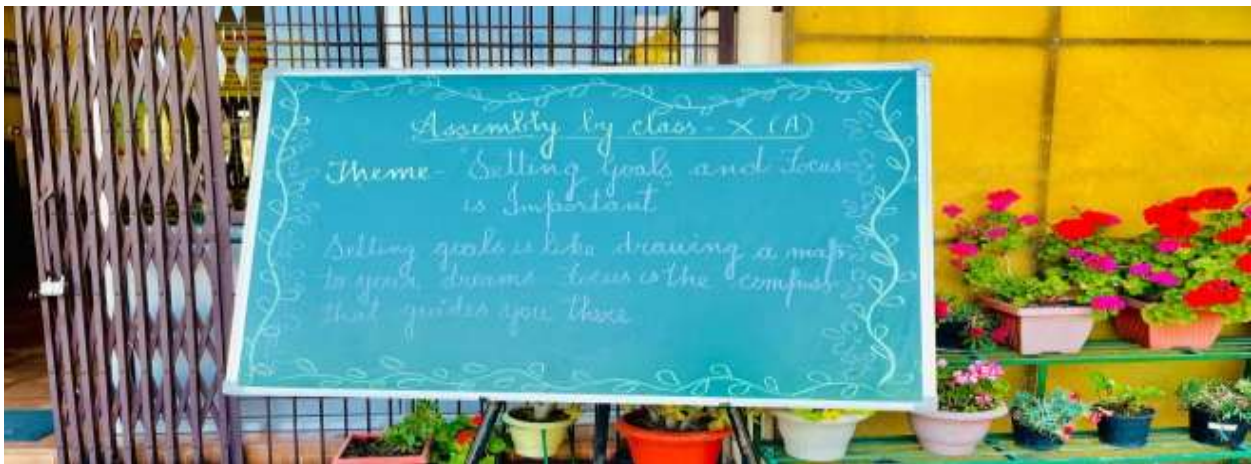 Assembly by class - X (A)
Theme - "Setting goals and Focus
is Important"
Setting goals is like drawing a map
to your dreams focus is the compass
that guides you there.